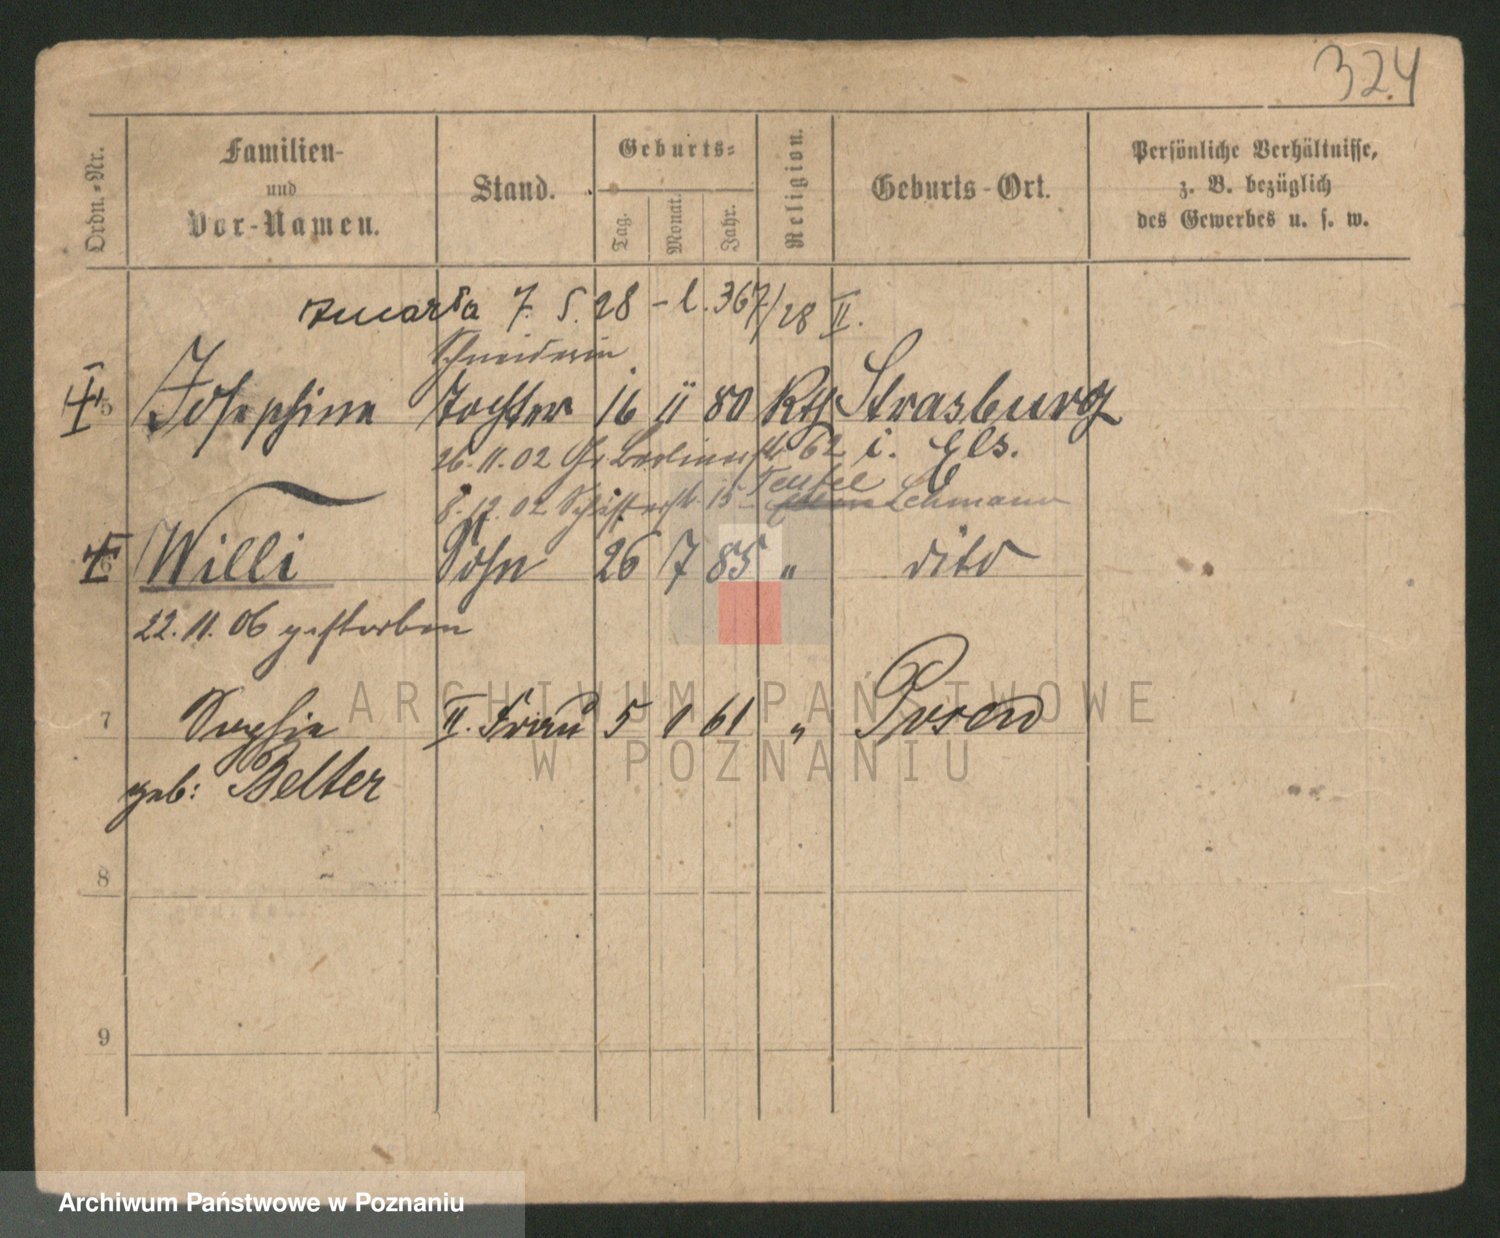 324
Ordn.-Nr.
Familien-
und
Vor-Namen.
Stand.
Geburts-
Tag.
Monat.
Jahr.
Religion.
Geburts-Ort.
Persönliche Verhältnisse,
z. B. bezüglich
des Gewerbes u. s. w.
zmarła 7. 5. 28 - l. 367/28 II.
Schneiderin
5 Josephine Tochter 16 11 80 Kth Strasburg
26.11.02 Gr. Berlinerstr 62 i. Els.
8.12.02 Schützenstr. 15 - Teufel
Lehmann
6 Willi Sohn 26 7 85 " dito
22.11.06 gestorben
7 Sophie II. Frau 5 1 61 " Posen
geb: Belter
8
9
ARCHIWUM PAŃSTWOWE
W POZNANIU
Archiwum Państwowe w Poznaniu